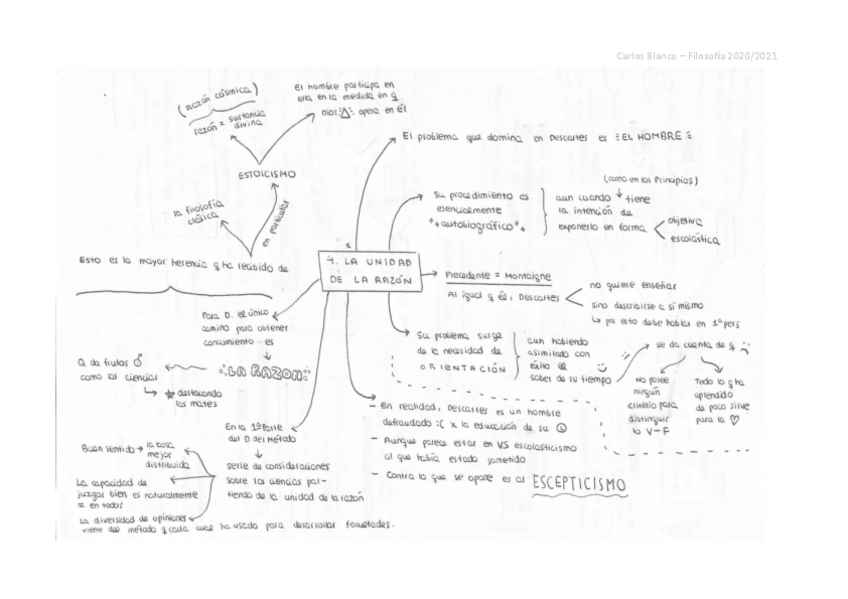 Carlos Blanco – Filosofía 2020/2021
(Razón cósmica)
razón = sustancia
divina
El hombre participa en
ella en la medida en q
Dios opera en él
ESTOICISMO
la filosofía
clásica
en particular
Esto es la mayor herencia q ha recibido de
4. LA UNIDAD
DE LA RAZÓN
El problema que domina en Descartes es EL HOMBRE
Su procedimiento es
esencialmente
autobiográfico
(como en los Principios)
aun cuando tiene
la intención de
exponerlo en forma
objetiva
escolástica
Precedente = Montaigne
Al igual q él, Descartes
no quiere enseñar
sino describirse a sí mismo
↳ por esto debe hablar en 1ª pers
Su problema surge
de la necesidad de
ORIENTACIÓN
aun habiendo
asimilado con
éxito el
saber de su tiempo
se da cuenta de q
No posee
ningún
criterio para
distinguir
lo V-F
Todo lo q ha
aprendido
de poco sirve
para la
- En realidad, Descartes es un hombre
defraudado :( x la educación de su
- Aunque parece estar en VS escolasticismo
al que había estado sometido
- Contra lo que se opone es al ESCEPTICISMO
Para D. el único
camino para obtener
conocimiento es
LA RAZON
Q da frutos
como las ciencias
↳ destacando
las mates
En la 1ª Parte
del D del Método
serie de consideraciones
sobre las ciencias par-
tiendo de la unidad de la razón
Buen sentido → la cosa
mejor
distribuida
La capacidad de
juzgar bien es naturalmente
= en todos
La diversidad de opiniones
viene del método q cada uno ha usado para desarrollar facultades.